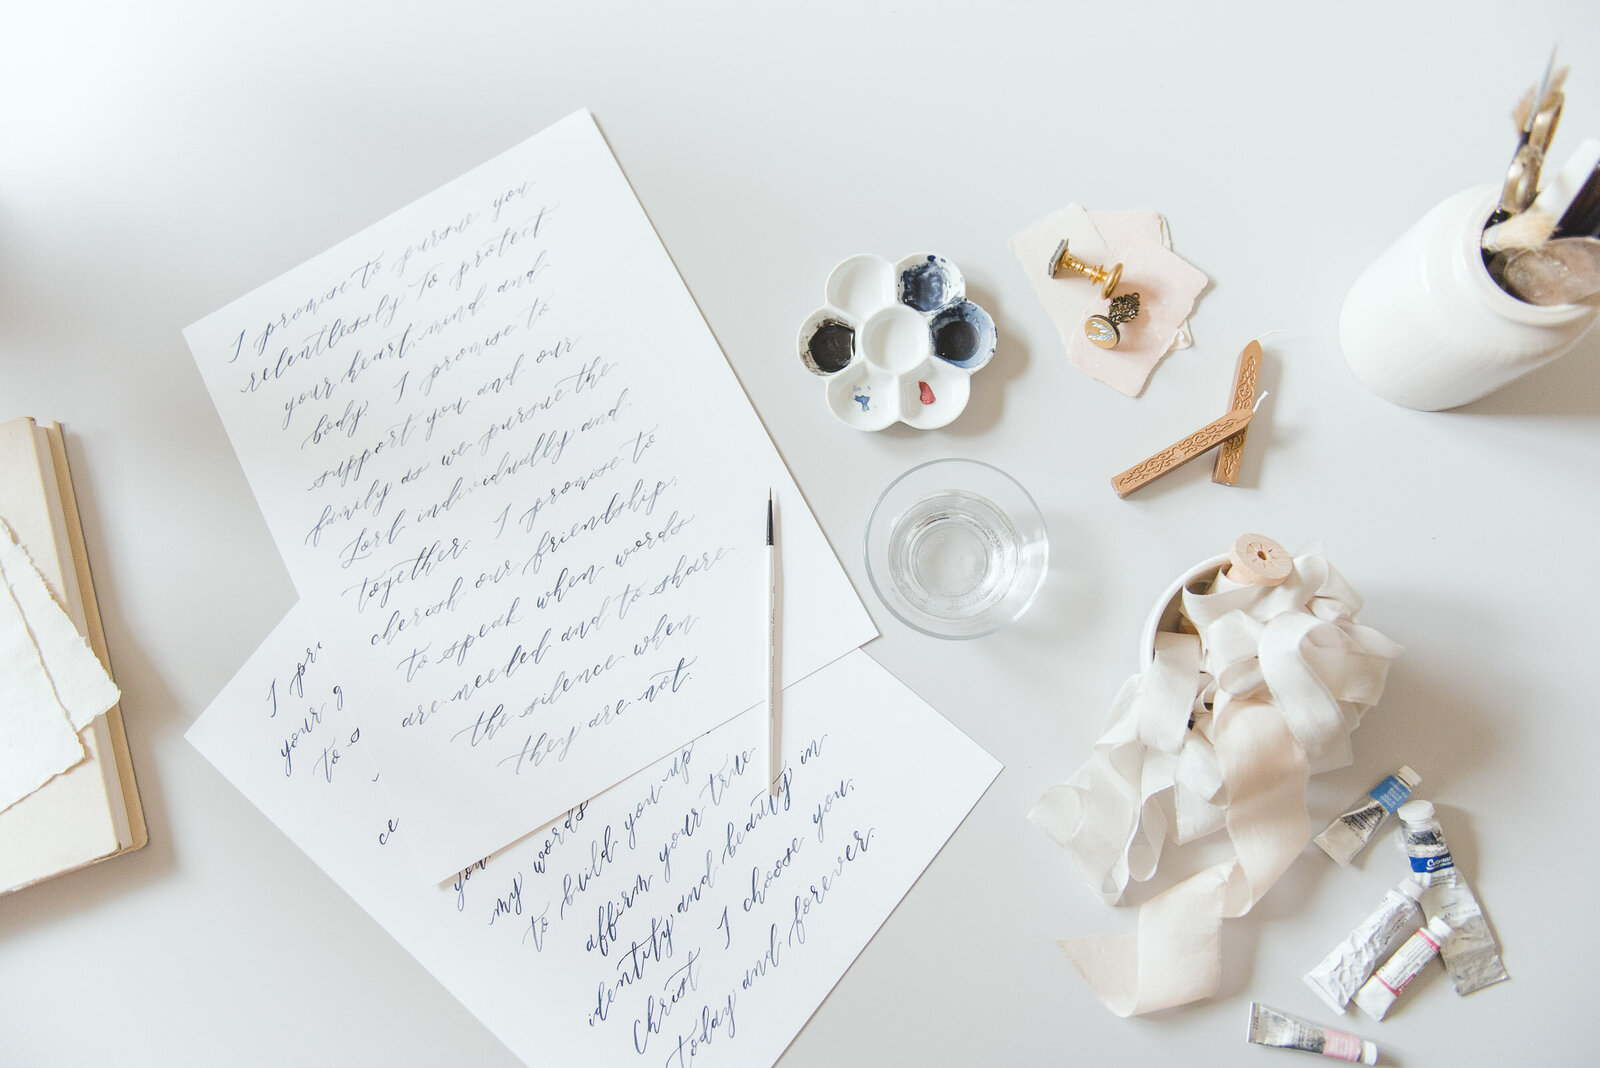 I promise to pursue you
relentlessly to protect
your heart, mind, and
body. I promise to
support you and our
family as we pursue the
Lord individually and
together. I promise to
cherish our friendship,
to speak when words
are needed and to share
the silence when
they are not.
I pr
your g
to s
ce
you.
my words
to build you up
affirm your true
identity and beauty in
Christ. I choose you,
today and forever.